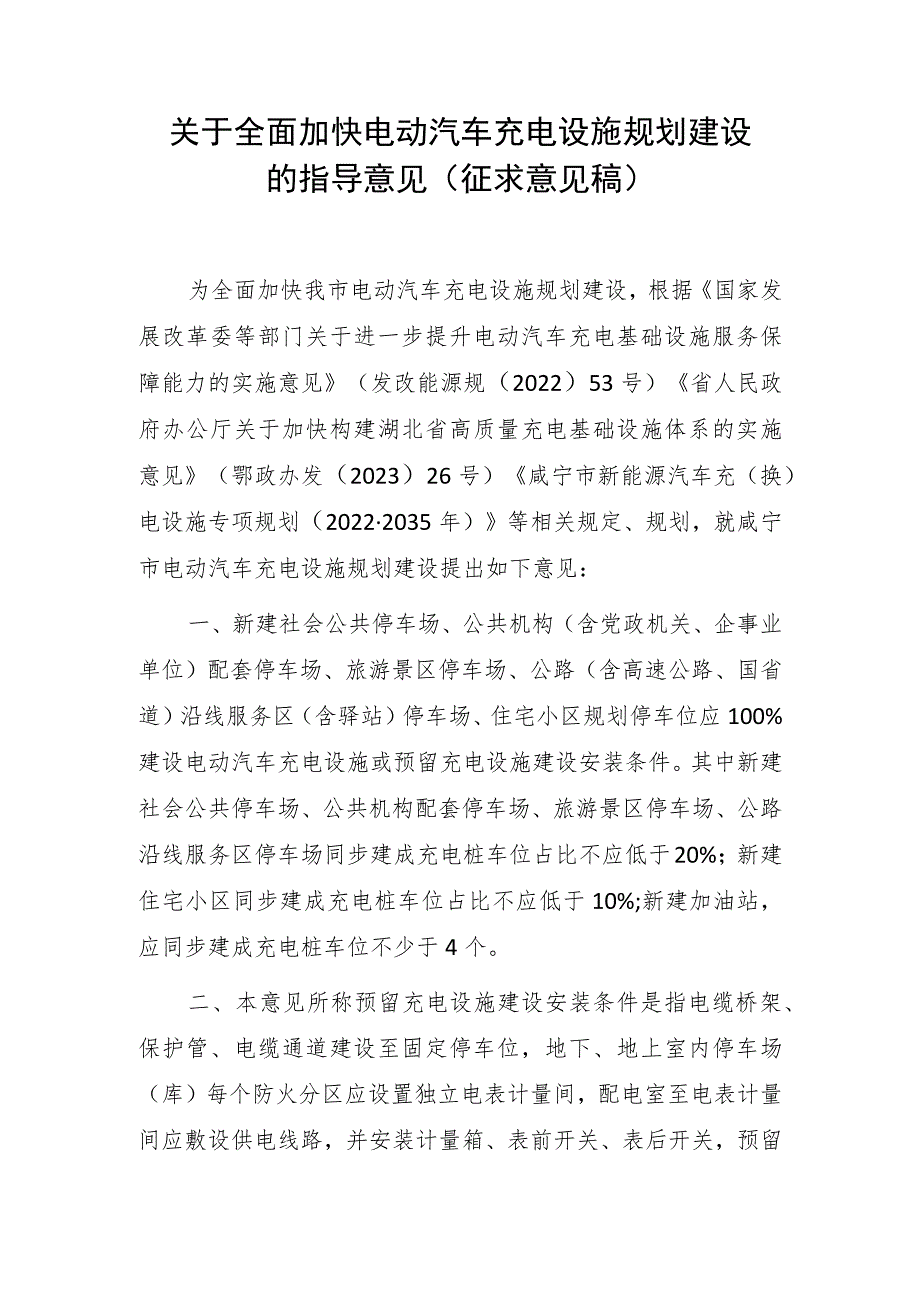 关于全面加快电动汽车充电设施规划建设
的指导意见（征求意见稿）
为全面加快我市电动汽车充电设施规划建设，根据《国家发
展改革委等部门关于进一步提升电动汽车充电基础设施服务保
障能力的实施意见》（发改能源规（2022）53 号）《省人民政
府办公厅关于加快构建湖北省高质量充电基础设施体系的实施
意见》（鄂政办发（2023）26 号）《咸宁市新能源汽车充（换）
电设施专项规划（2022·2035 年）》等相关规定、规划，就咸宁
市电动汽车充电设施规划建设提出如下意见：
一、新建社会公共停车场、公共机构（含党政机关、企事业
单位）配套停车场、旅游景区停车场、公路（含高速公路、国省
道）沿线服务区（含驿站）停车场、住宅小区规划停车位应 100%
建设电动汽车充电设施或预留充电设施建设安装条件。其中新建
社会公共停车场、公共机构配套停车场、旅游景区停车场、公路
沿线服务区停车场同步建成充电桩车位占比不应低于 20%；新建
住宅小区同步建成充电桩车位占比不应低于 10%;新建加油站，
应同步建成充电桩车位不少于 4 个。
二、本意见所称预留充电设施建设安装条件是指电缆桥架、
保护管、电缆通道建设至固定停车位，地下、地上室内停车场
（库）每个防火分区应设置独立电表计量间，配电室至电表计量
间应敷设供电线路，并安装计量箱、表前开关、表后开关，预留